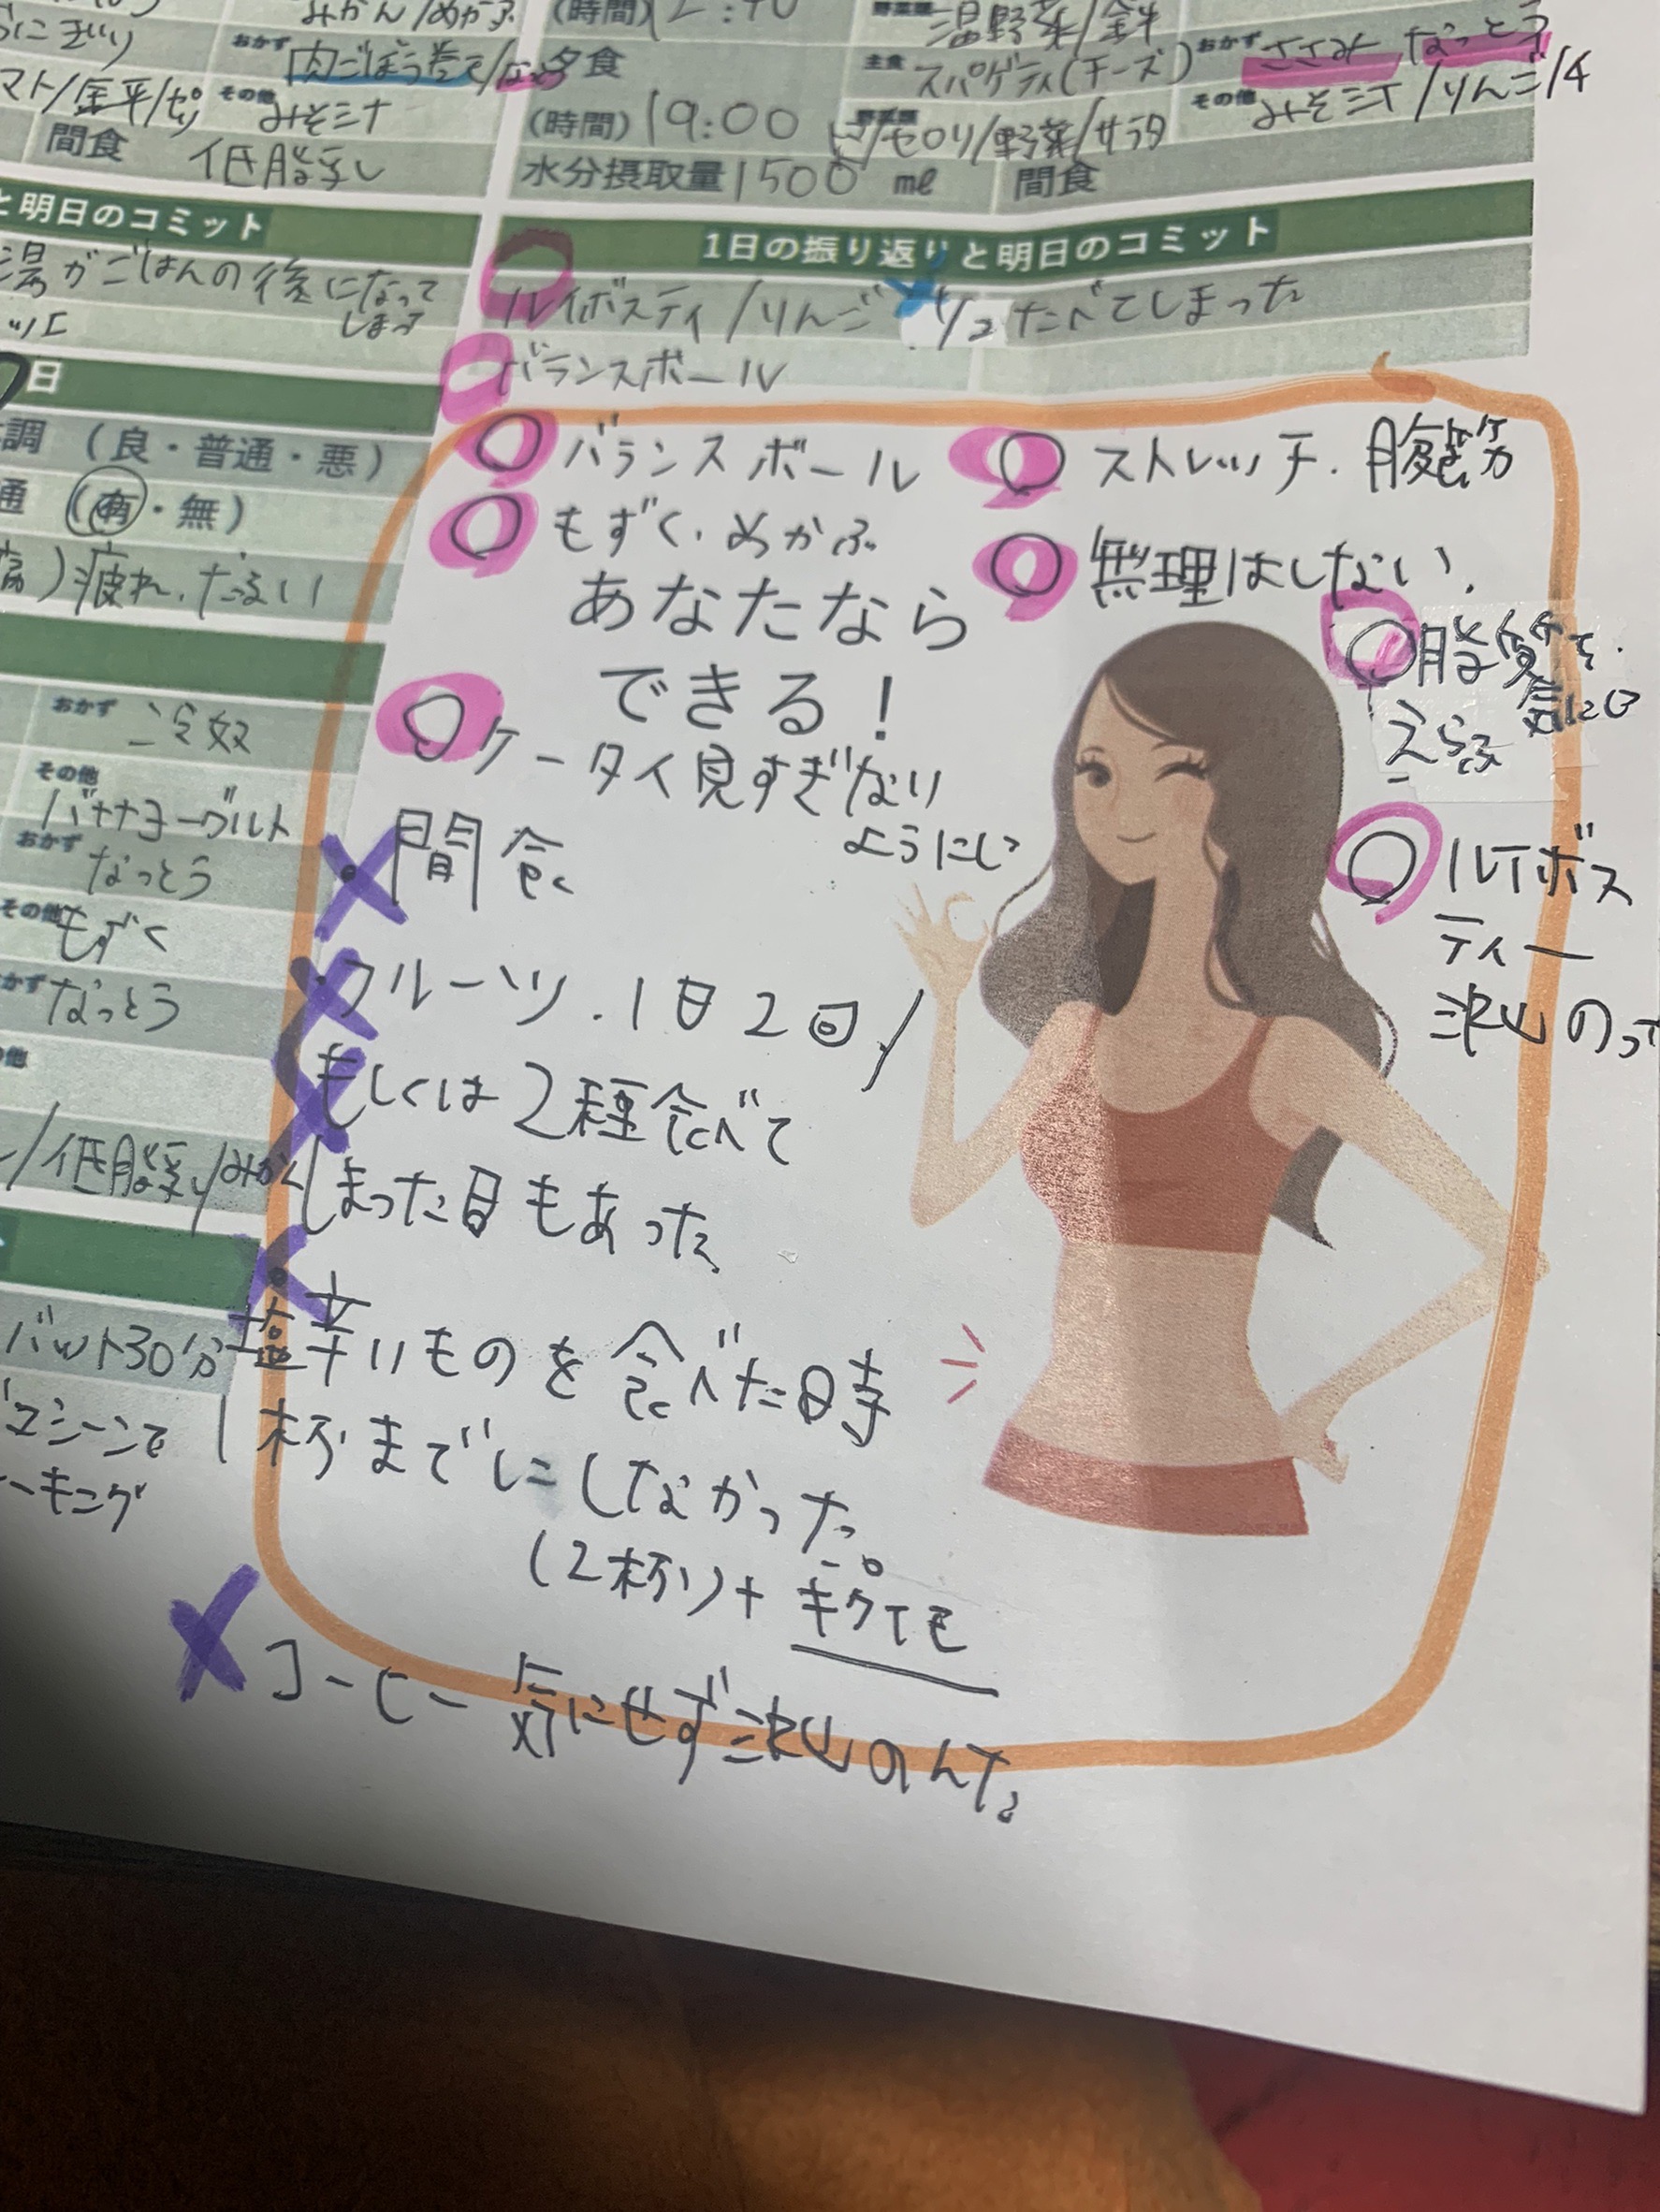 みかん/めかぶ
おにぎり
おかず 肉ごぼう巻き/なっとう
マト/金平/ゼリ その他 みそ汁
間食 低脂乳
と明日のコミット
湯がごはんの後になって
しまう
日
調（良・普通・悪）
通（有・無）
痛）疲れ、だるい
おかず 冷奴
その他
バナナヨーグルト
おかず なっとう
その他 もずく
おかず なっとう
の他
/低脂乳/みかん
バット30分
マシーンで
ーキング
(時間)
野菜類 温野菜/金平
夕食
主食 スパゲティ(チーズ) おかず ささみ なっとう
(時間) 19:00
野菜類 セロリ/野菜/サラダ その他 みそ汁/りんご/4
水分摂取量 1500 ml 間食
1日の振り返りと明日のコミット
ルイボスティ/りんご 1/2 たべてしまった
バランスボール
○バランスボール ○ストレッチ.腹筋
○もずく.めかぶ ○無理はしない.
あなたなら
できる！
○脂質を.
気にして
えらぶ
○ケータイ見すぎない
ようにし
○ルイボス
ティー
沢山のって
・間食
・フルーツ.1日2回/
もしくは2種食べて
しまった日もあった
・塩辛いものを食べた時
1杯までにしなかった。
(2杯)+キクイモ
コーヒー気にせず沢山のんだ。